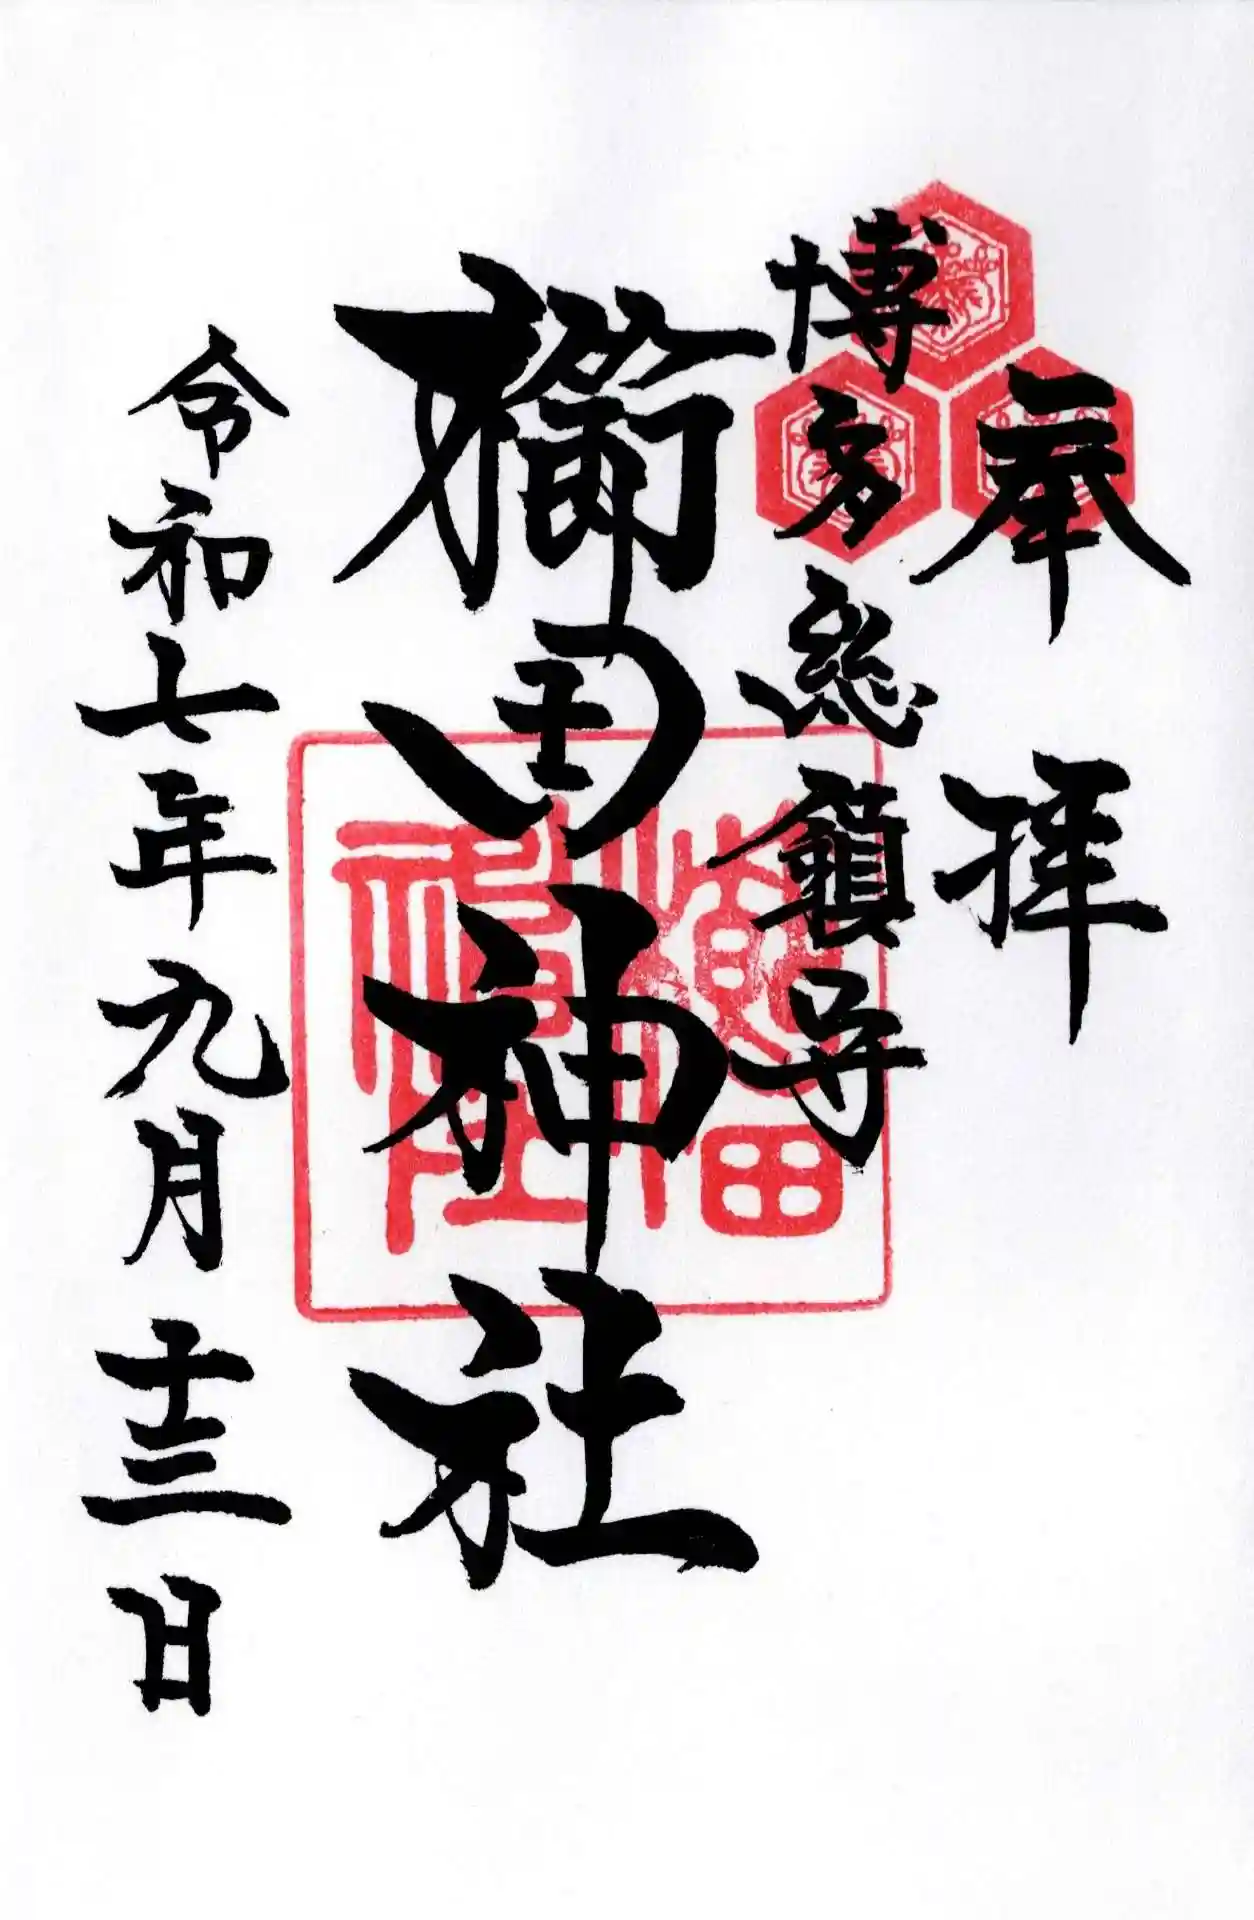 奉拝
博多総鎮守
櫛田神社
櫛田
神社
令和七年九月十三日